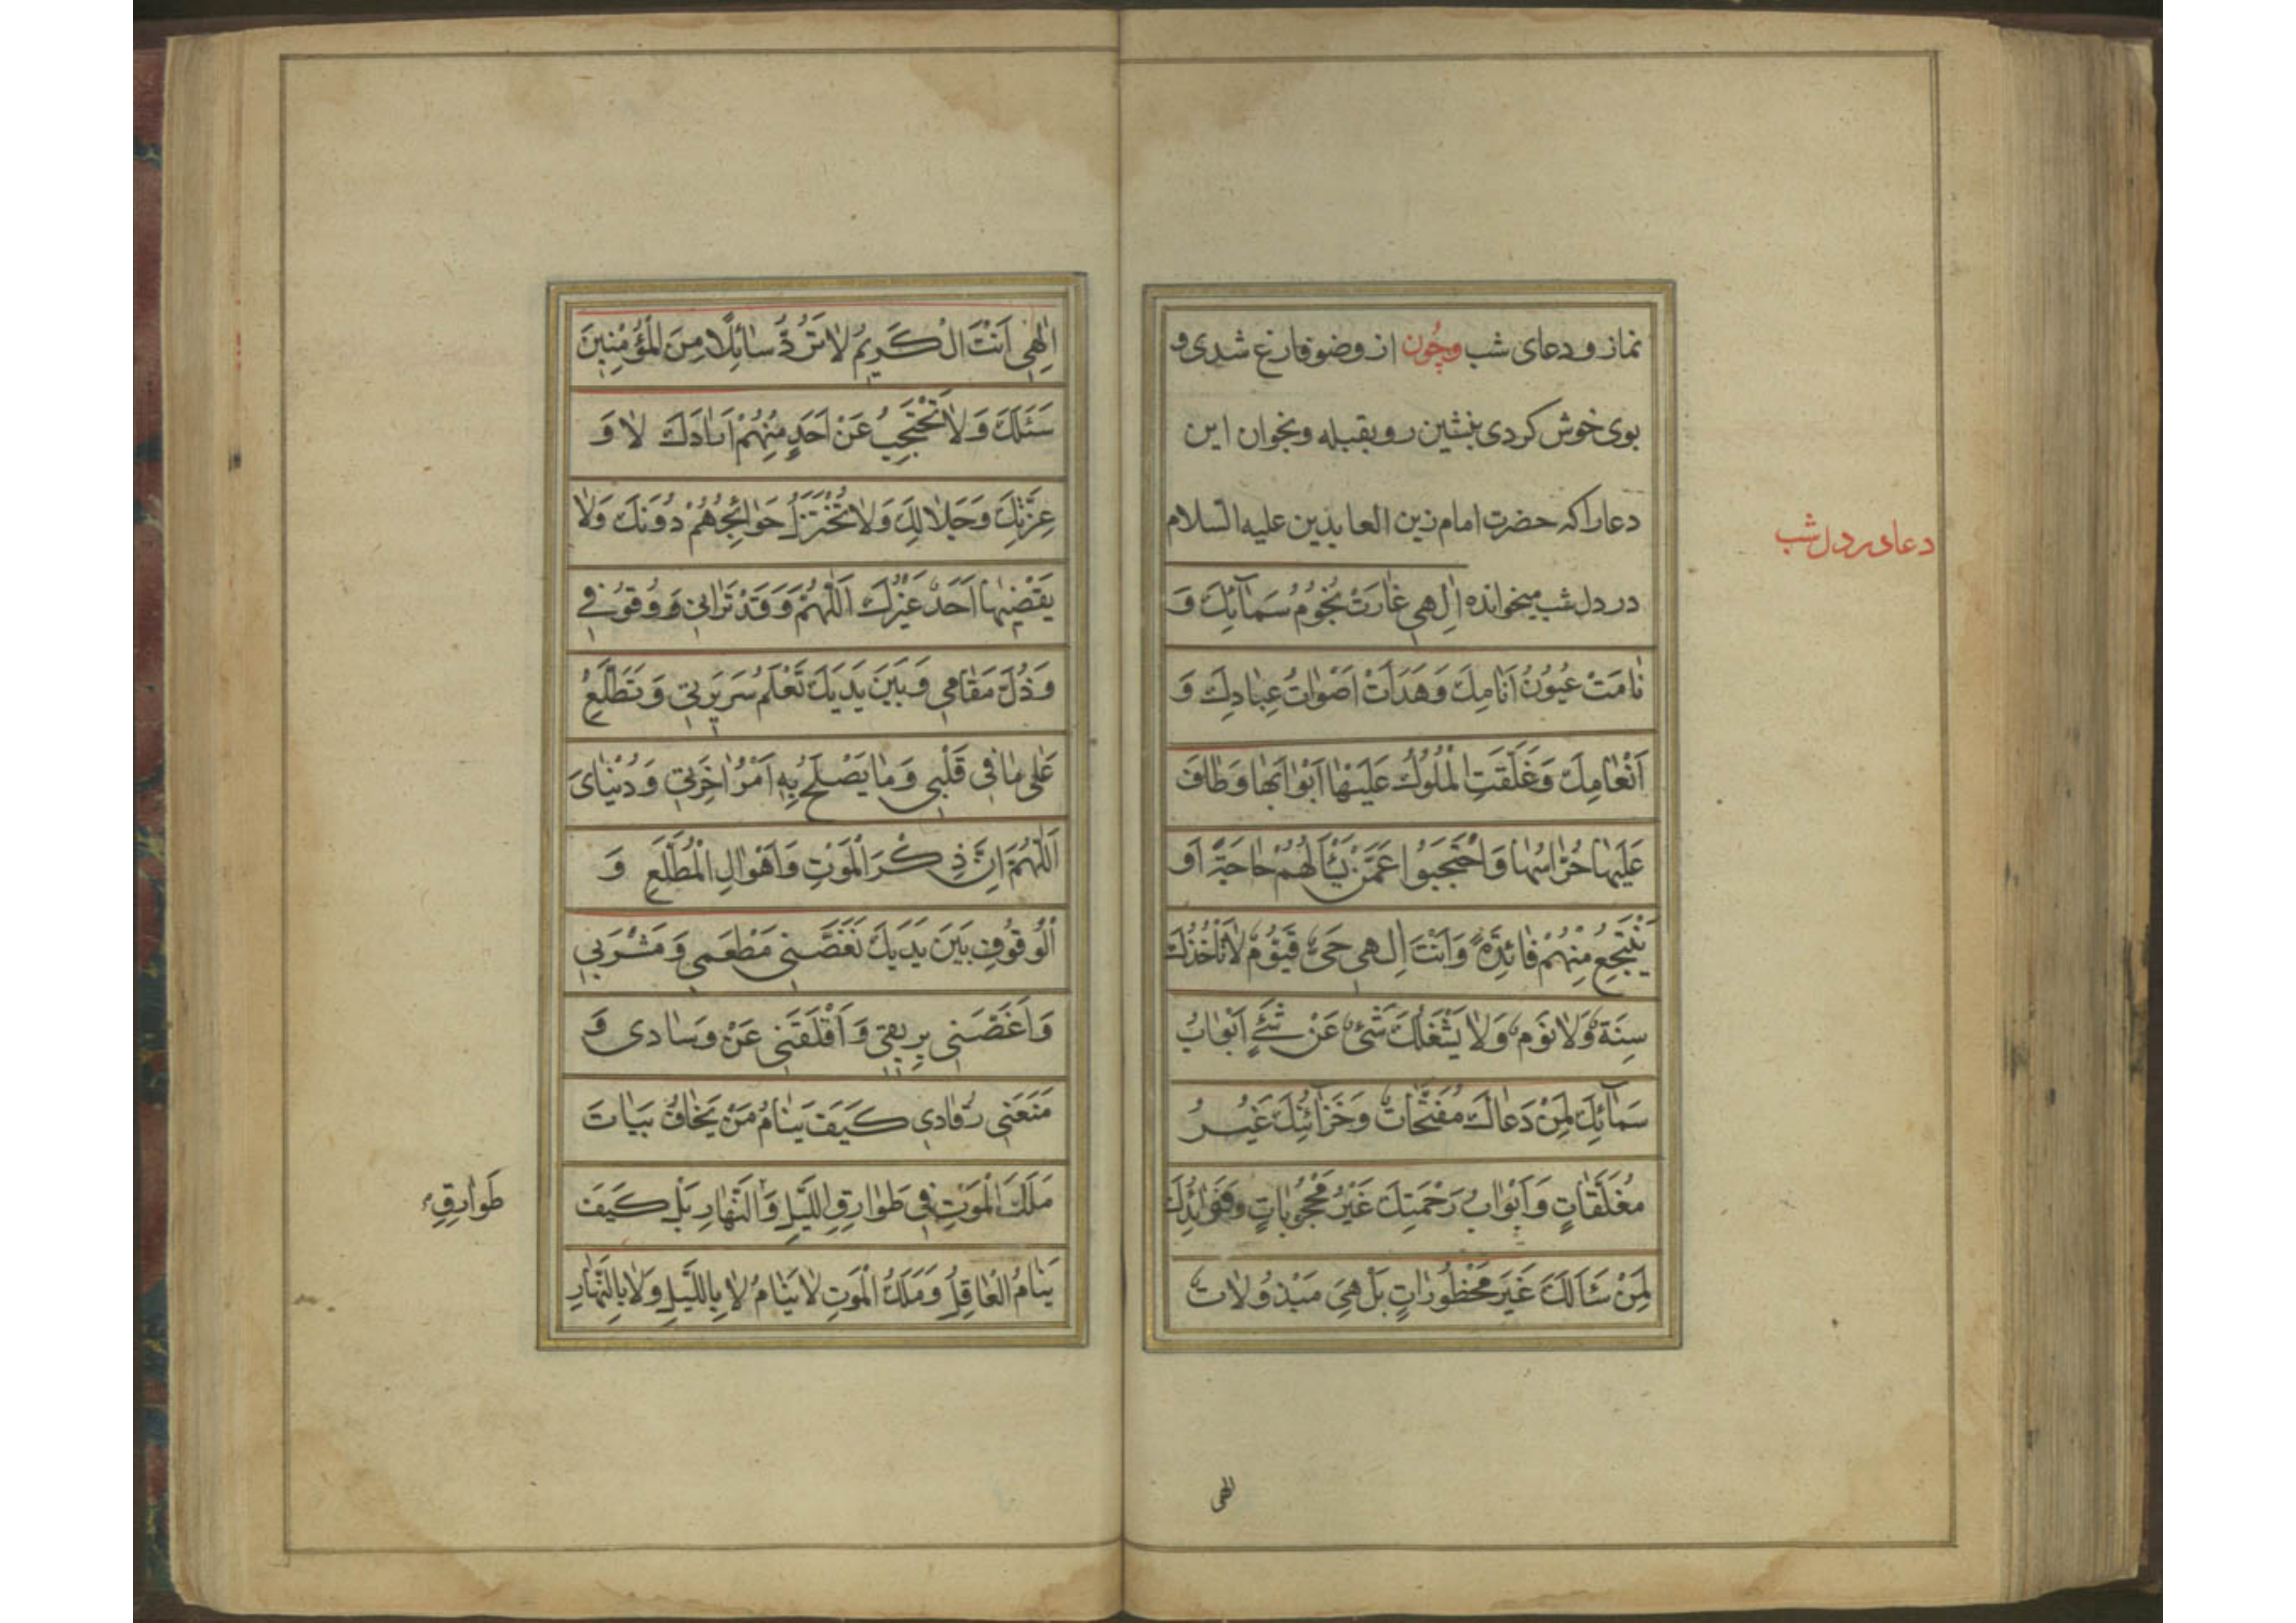 نماز و دعای شب وچُون از وضو فارغ شدی و
بوی خوش کردی بنشین رو بقبله و بخوان این
دعا را که حضرت امام زین العابدین علیه السلام
دعای در دل شب
در دل شب میخوانده اِلهِي غارَتْ نُجُومُ سَمآئِكَ وَ
نٰامَتْ عُيُونُ اَنٰامِكَ وَهَدَاَتْ اَصْوٰاتُ عِبٰادِكَ وَ
اَنْعٰامِكَ وَغَلَّقَتِ الْمُلُوكُ عَلَيْهٰا اَبْوٰابَهٰا وَطٰافَ
عَلَيْهٰا حُرّٰاسُهٰا وَاحْتَجَبُوا عَمَّنْ يَسْأَلُهُمْ حٰاجَةً اَو
يَنْتَجِعُ مِنْهُمْ فٰائِدَةً وَاَنْتَ اِلهِي حَيٌّ قَيُّومٌ لٰا تَأْخُذُكَ
سِنَةٌ وَلٰا نَوْمٌ وَلٰا يَشْغَلُكَ شَئٌ عَنْ شَئٍ اَبْوٰابُ
سَمآئِكَ لِمَنْ دَعٰاكَ مُفَتَّحٰاتٌ وَخَزٰآئِنُكَ غَيْرُ
مُغَلَّقٰاتٍ وَاَبْوٰابُ رَحْمَتِكَ غَيْرُ مَحْجُوبٰاتٍ وَفَوٰائِدُكَ
لِمَنْ سَئَالَكَ غَيْرَ مَحْظُورٰاتٍ بَلْ هِيَ مَبْذُولٰاتٌ
الهی
اِلٰهِي اَنْتَ الْكَرِيمُ لٰا تَرُدُّ سٰائِلًا مِنَ الْمُؤْمِنِينَ
سَئَلَكَ وَلٰا تَحْتَجِبُ عَنْ اَحَدٍ مِنْهُمْ اَرٰادَكَ لٰا وَ
عِزَّتِكَ وَجَلٰالِكَ وَلٰا تُخْتَزَلُ حَوٰائِجُهُمْ دُونَكَ وَلٰا
يَقْضِيهٰا اَحَدٌ غَيْرُكَ اَللّٰهُمَّ وَقَدْ تَرٰانِي وَوُقُوفِي
وَذُلَّ مَقٰامِي وَبَيْنَ يَدَيْكَ تَعْلَمُ سَرِيرَتِي وَتَطَّلِعُ
عَلٰى مٰا فِي قَلْبِي وَمٰا يَصْلَحُ بِهِ اَمْرُ اٰخِرَتِي وَدُنْيٰاىَ
اَللّٰهُمَّ اِنَّ ذِكْرَ الْمَوْتِ وَاَهْوٰالِ الْمُطَّلَعِ وَ
الْوُقُوفِ بَيْنَ يَدَيْكَ نَغَّصَنِي مَطْعَمِي وَمَشْرَبِي
وَاَغَصَّنِي بِرِيقِي وَاَقْلَقَنِي عَنْ وِسٰادِى وَ
مَنَعَنِي رُقٰادِي كَيْفَ يَنٰامُ مَنْ يَخٰافُ بَيٰاتَ
مَلَكَ الْمَوْتِ فِي طَوٰارِقِ اللَّيْلِ وَالنَّهٰارِ بَلْ كَيْفَ
طَوٰارِقِ
يَنٰامُ الْعٰاقِلُ وَمَلَكُ الْمَوْتِ لٰا يَنٰامُ لٰا بِاللَّيْلِ وَلٰا بِالنَّهٰارِ